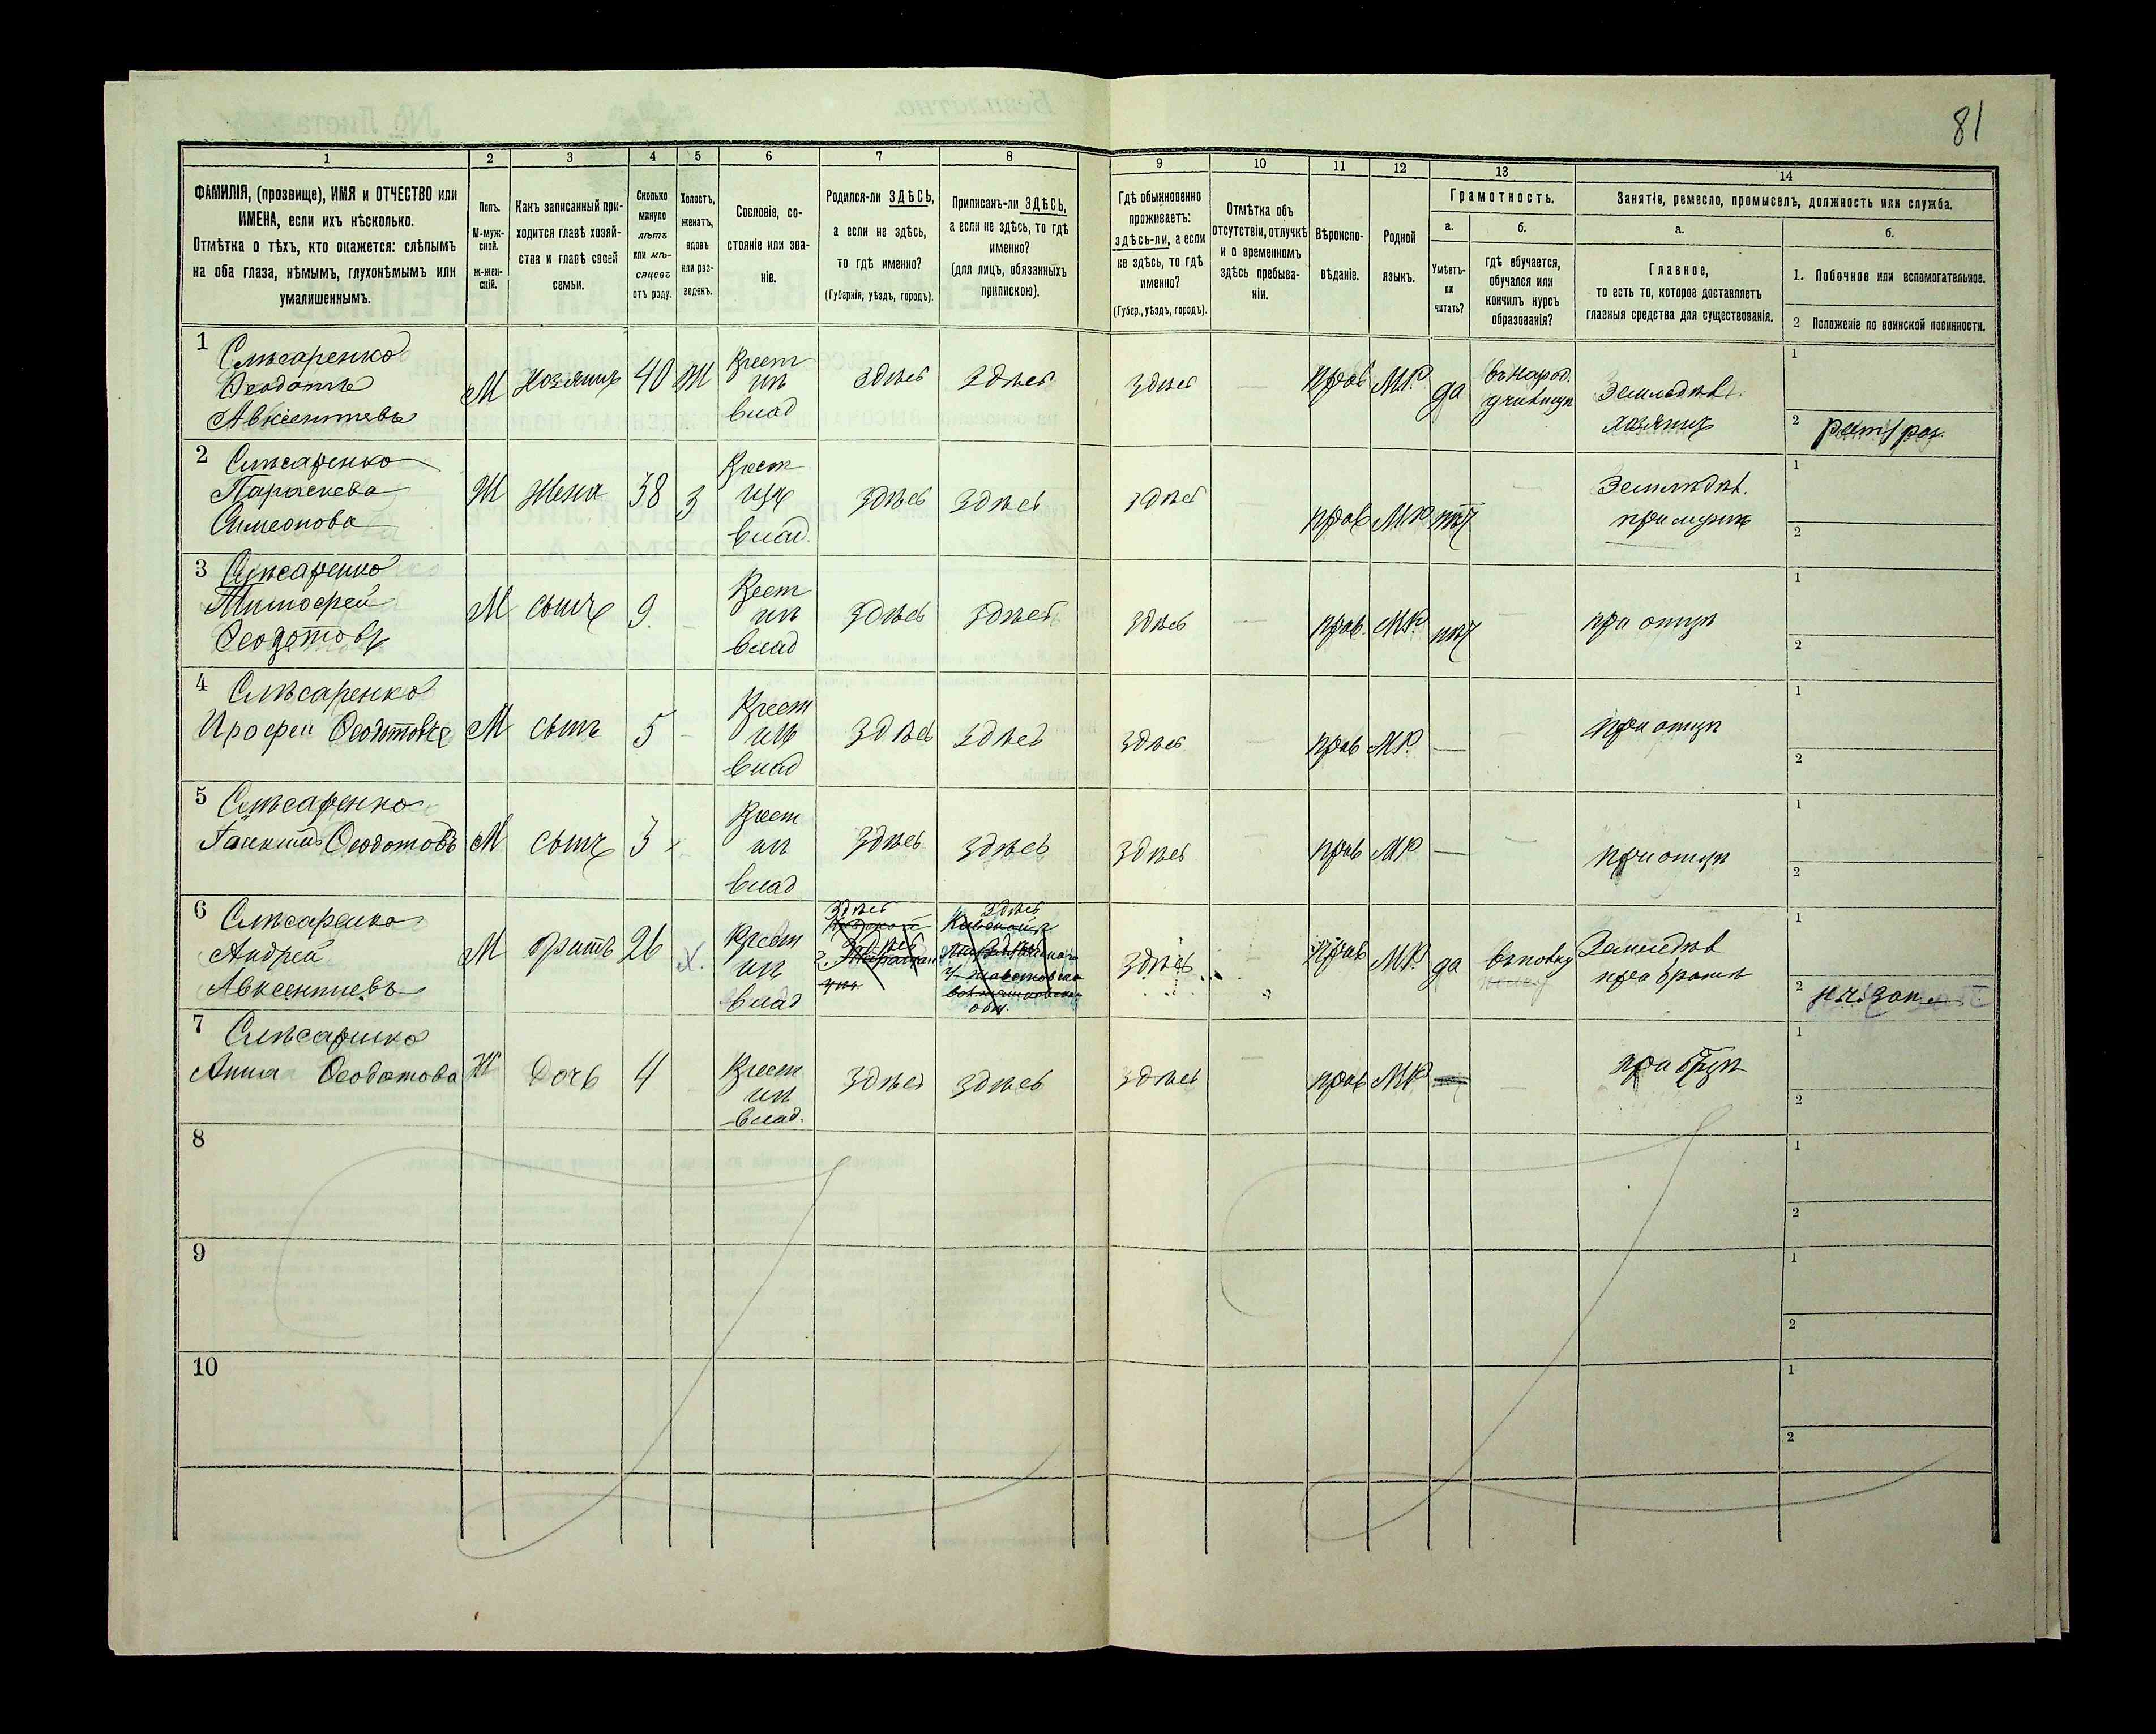 81
1 2 3 4 5 6 7 8 9 10 11 12 13 14
ФАМИЛІЯ, (прозвище), ИМЯ и ОТЧЕСТВО или
ИМЕНА, если ихъ нѣсколько.
Отмѣтка о тѣхъ, кто окажется: слѣпымъ
на оба глаза, нѣмымъ, глухонѣмымъ или
умалишеннымъ.
Полъ.
М-муж-
ской.
ж-жен-
скій.
Какъ записанный при-
ходится главѣ хозяй-
ства и главѣ своей
семьи.
Сколько
минуло
лѣтъ
или мѣ-
сяцевъ
отъ роду.
Холостъ,
женатъ,
вдовъ
или раз-
веденъ.
Сословіе, со-
стояніе или зва-
ніе.
Родился-ли ЗДѢСЬ,
а если не здѣсь,
то гдѣ именно?
(Губернія, уѣздъ, городъ).
Приписанъ-ли ЗДѢСЬ,
а если не здѣсь, то гдѣ
именно?
(для лицъ, обязанныхъ
припискою).
Гдѣ обыкновенно
проживаетъ:
здѣсь-ли, а если
не здѣсь, то гдѣ
именно?
(Губер., уѣздъ, городъ).
Отмѣтка объ
отсутствіи, отлучкѣ
и о временномъ
здѣсь пребыва-
ніи.
Вѣроиспо-
вѣданіе.
Родной
языкъ.
Грамотность.
а.
Умѣетъ-
ли
читать?
б.
гдѣ обучается,
обучался или
кончилъ курсъ
образованія?
Занятія, ремесло, промыселъ, должность или служба.
а.
Главное,
то есть то, которое доставляетъ
главныя средства для существованія.
б.
1. Побочное или вспомогательное.
2 Положеніе по воинской повинности.
1 Слѣсаренко
Ѳеодотъ
Авксентьевъ
М Хозяинъ 40 Ж
Крест
инъ
влад
здѣсь здѣсь здѣсь — прав М.Р. да
въ народ.
училищѣ
Земледѣл.
хозяинъ
1
2
2 Слѣсаренко
Параскева
Симеонова
Ж Жена 38 З
Крест
влад.
здѣсь здѣсь здѣсь — прав М.Р нѣт —
Земледѣл.
при мужѣ
1
2
3 Слѣсаренко
Тимофей
Ѳеодотовъ
М сынъ 9. —
Крест
инъ
влад
здѣсь здѣсь здѣсь — прав. М.Р. нѣт —
при отцѣ
1
2
4 Слѣсаренко
Ѳеодотовъ М сынъ 5 —
Крест
инъ
влад
здѣсь здѣсь здѣсь — прав М.Р. — —
при отцѣ
1
2
5 Слѣсаренко
Ѳеодотовъ М сынъ 3 -
Крест
инъ
влад
здѣсь здѣсь здѣсь — прав М.Р — —
при отцѣ
1
2
6 Слѣсаренко
Андрей
Авксентиевъ
М братъ 26 х.
Крест
инъ
влад
здѣсь здѣсь
здѣсь прав М.Р. да
Земледѣл
при братѣ
1
2
7 Слѣсаренко
Анна Ѳеодотова Ж Дочь 4
Крест
инъ
влад.
здѣсь здѣсь здѣсь — прав М.Р. — —
при отцѣ
1
2
8
1
2
9
1
2
10
1
2